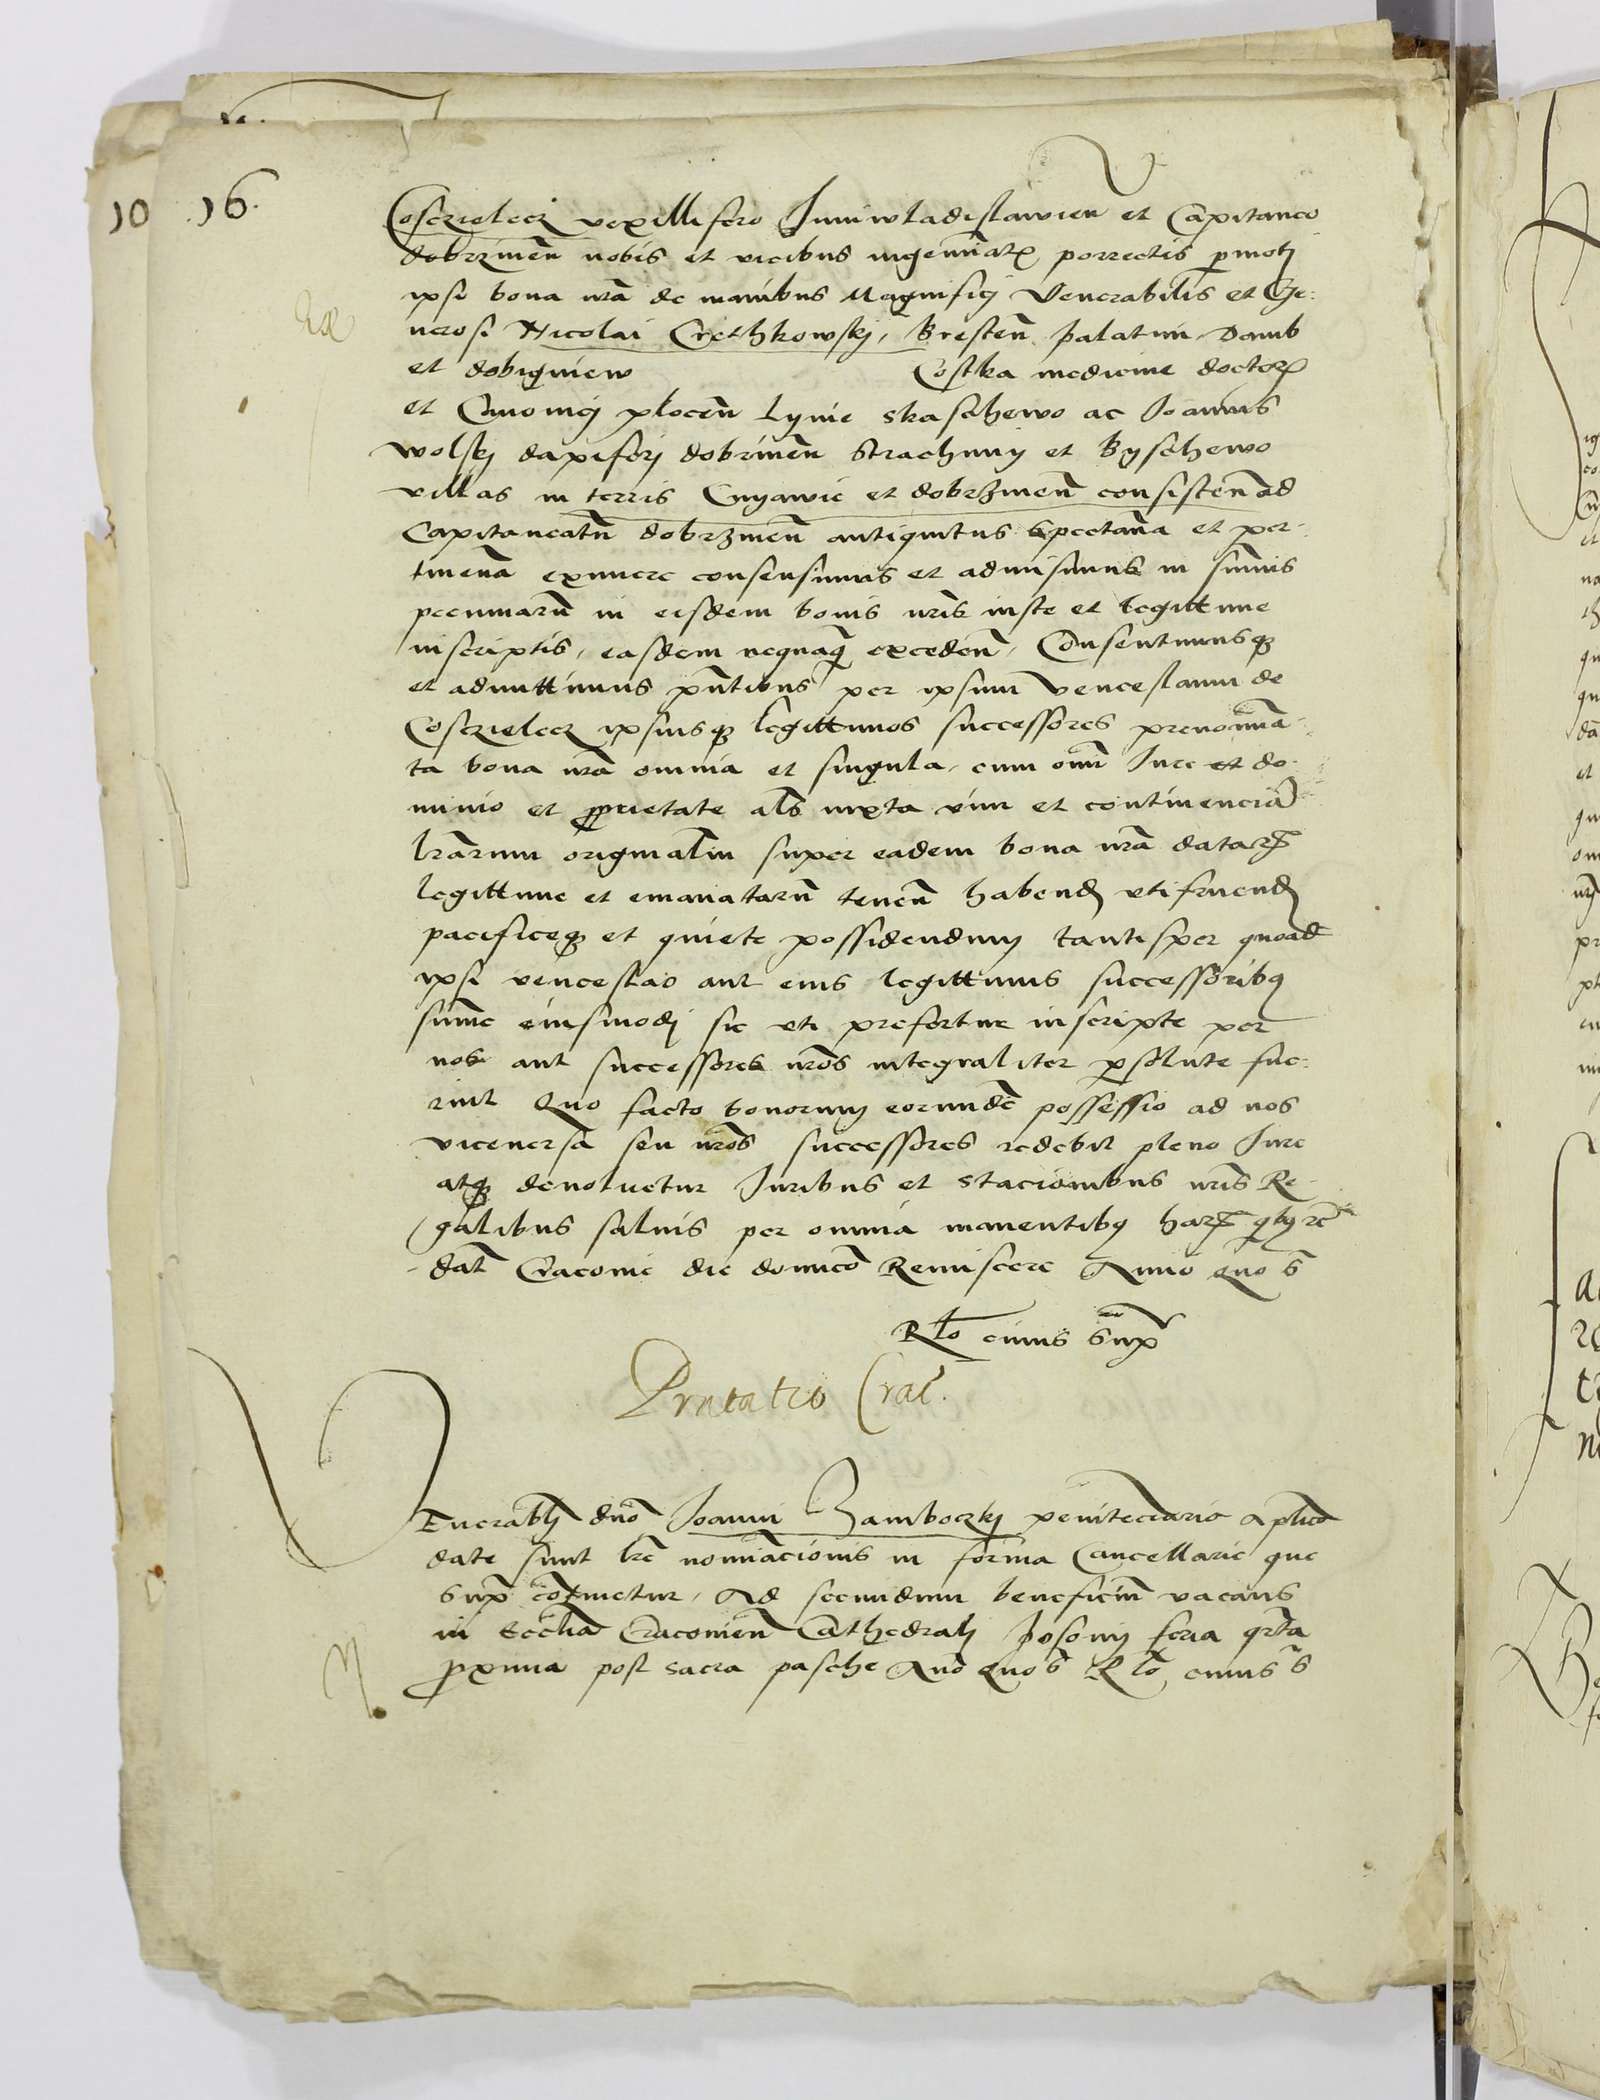 10 16.
Coserielecz vexillifero Juniwladislawien̄ et Capitaneo
dobrzinen̄ nobis et vicibus ingeminatꝭ porrectis p̱moti
ipsi bona nr̄a de manibus Magnifici Venerabilis et Ge-
nerosi Nicolai Crethkowskj, Bresten̄ palatini
et dobigniew Costka medicine doctorꝭ
et Canonici plocen̄ lynie skaschewo ac Joannis
wolskj dapiferj dobrinen̄ Strachuny et Byschewo
villas in terris Cuyawie et dobrzinen̄ consisten̄ ad
Capitaneatū dobrzinen̄ antiquitus spectan̄a et per-
tinen̄a exmere consensimus et admisimus in sum̄is
pecuniarū in eisdem bonis nr̄is iuste et legittime
inscriptis, easdem nequaq̄ exceden̄, Consentimusqꝫ
et admittimus pn̄tibus per ipsum venceslaum de
Cosrielecz ipsiusqꝫ legittimos successores prenomina-
ta bona nr̄a omnia et singula, cum om̄i Jure et do-
minio et ꝓprietate als̄ iuxta vim et continenciā
lr̄arum originaliū super eadem bona nr̄a datarꝝ
legittime et emanatarū tenen̄ habendꝭ utifruendꝭ
pacificeqꝫ et quiete possidendum tantisper quoad
ipsi venceslao aut eius legittimis successoribꝰ
sum̄e eiusmodi sic uti prefertur inscripte per
nos aut successores nr̄os integraliter p̱solute fue-
rint Quo facto bonorum eorundē possessio ad nos
viceuersa seu nr̄os successores redebit pleno Jure
atqꝫ deuoluetur Juribus et stacionibus nr̄is Re-
galibus saluis per omnia manentibꝰ harꝝ
dat̄ Cracovie die dominico Reminiscere Anno quo s̄
Rlō cuius supꝭ
Cracꝭ.
Venerabilj dn̄o Joanni Zamboczkj penitenciario Aplico
date sunt lr̄e nominacionis in forma Cancellarie que
supꝭ continetur, Ad secundum beneficiū vacans
in Ecclia Cracovien̄ Cathedralj Posonij feria qrta
ꝓxima post sacra pasche Anō quo s̄ Rlō cuius s̄